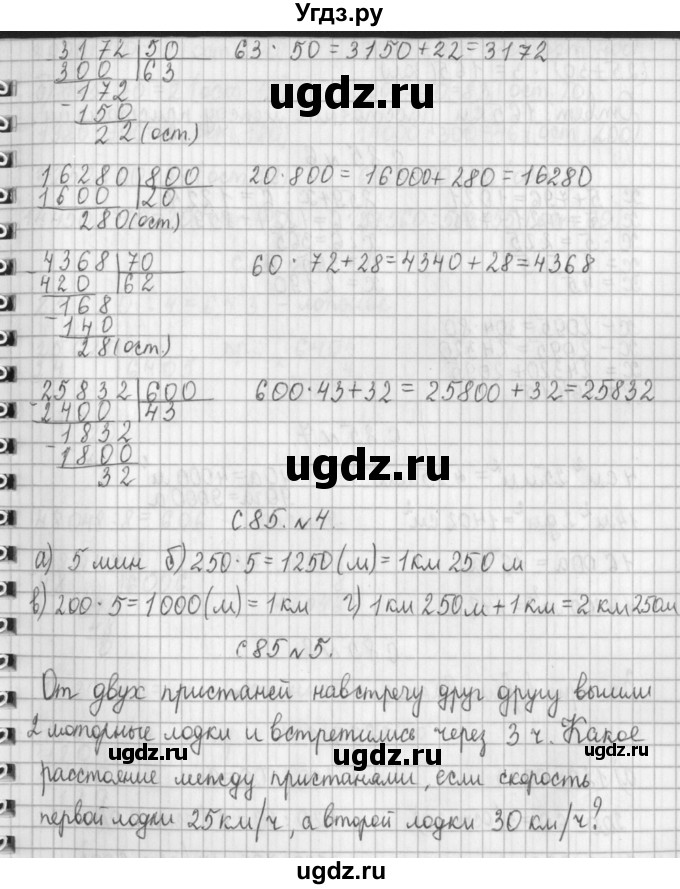 Угдз.ру
3172 50 63 · 50 = 3150 + 22 = 3172
300 63
172
150
22 (ост.)
ugdz.ru
16280 800 20 · 800 = 16000 + 280 = 16280
1600 20
280 (ост)
4368 70 60 · 72 + 28 = 4340 + 28 = 4368
420 62
168
140
28 (ост.)
ugdz.ru
25832 600 600 · 43 + 32 = 25800 + 32 = 25832
2400 43
1832
1800
32
ugdz.ru
С 85. №4.
а) 5 мин б) 250 · 5 = 1250 (м) = 1 км 250 м
в) 200 · 5 = 1000 (м) = 1 км г) 1 км 250 м + 1 км = 2 км 250 м
С 85 №5.
От двух пристаней навстречу друг другу вышли
2 моторные лодки и встретились через 3 ч. Какое
ugdz.ru ugdz.ru
расстояние между пристанями, если скорость
первой лодки 25 км/ч, а второй лодки 30 км/ч?
ugdz.ru